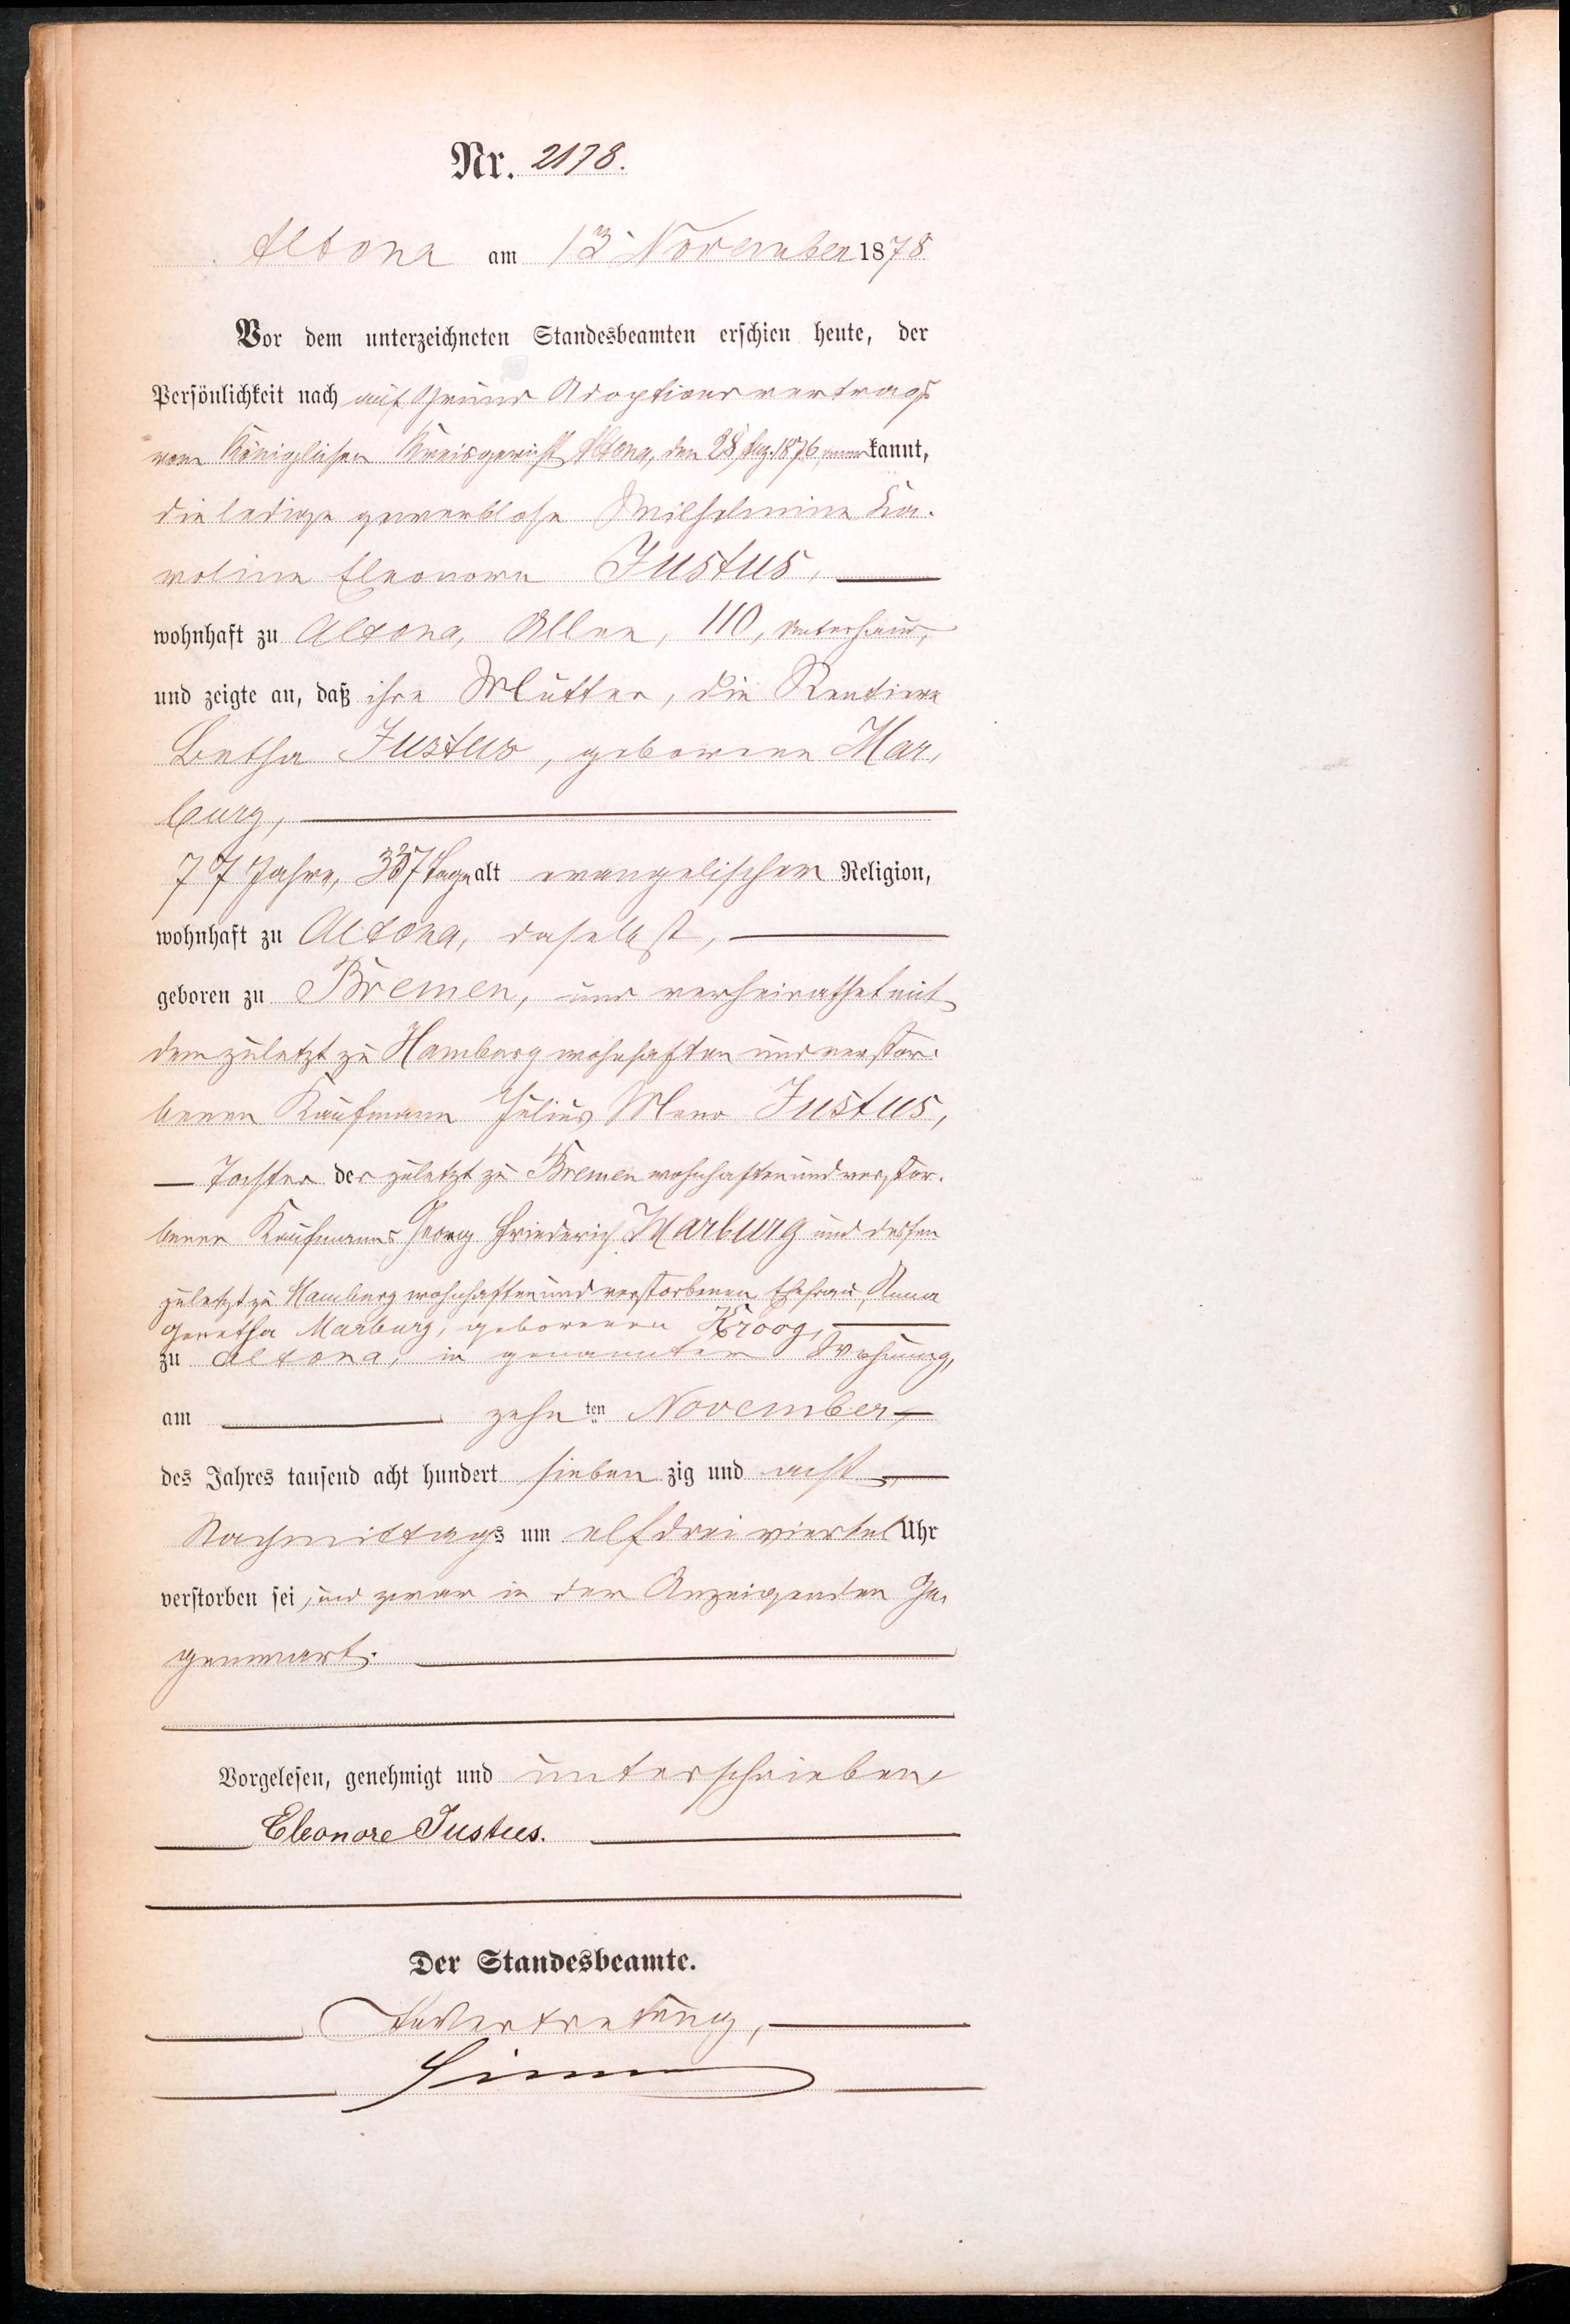 Nr. 2178.
Altona am 13 November 1878
Vor dem unterzeichneten Standesbeamten erschien heute, der
Persönlichkeit nach auf Grund Adoptionsvertrags
vom Königlichen Kreisgericht Altona, den 28 1876, anerkannt,
die ledige gewerblose Wilhelmine Ka-
roline Eleonore Justus,
wohnhaft zu Altona, Allee, 110, Unterhaus,
und zeigte an, daß ihre Mutter, die Rentiere
Betha Justus, geborene Mar-
burg,
77 Jahre, 337 Tage alt evangelischer Religion,
wohnhaft zu Altona, daselbst,
geboren zu Bremen, und verheirathet mit
dem zuletzt zu Hamburg wohnhaften und verstor-
benen Kaufmann Julius Meno Justus,
Tochter des zuletzt zu Bremen wohnhaften und verstor-
benen Kaufmanns Georg Friederich Marburg und dessen
zuletzt zu Hamburg wohnhaften und verstorbenen Ehefrau, Anna
Geretha Marburg, geborenen Kroog,
zu Altona, in genannter Wohnung,
am zehnten November,
des Jahres tausend acht hundert siebenzig und acht,
Nachmittags um elf drei viertel Uhr
verstorben sei, und zwar in der Anzeigenden Ge-
genwart.
Vorgelesen, genehmigt und unterschrieben
Eleonore Justus.
Der Standesbeamte.
In Vertretung,